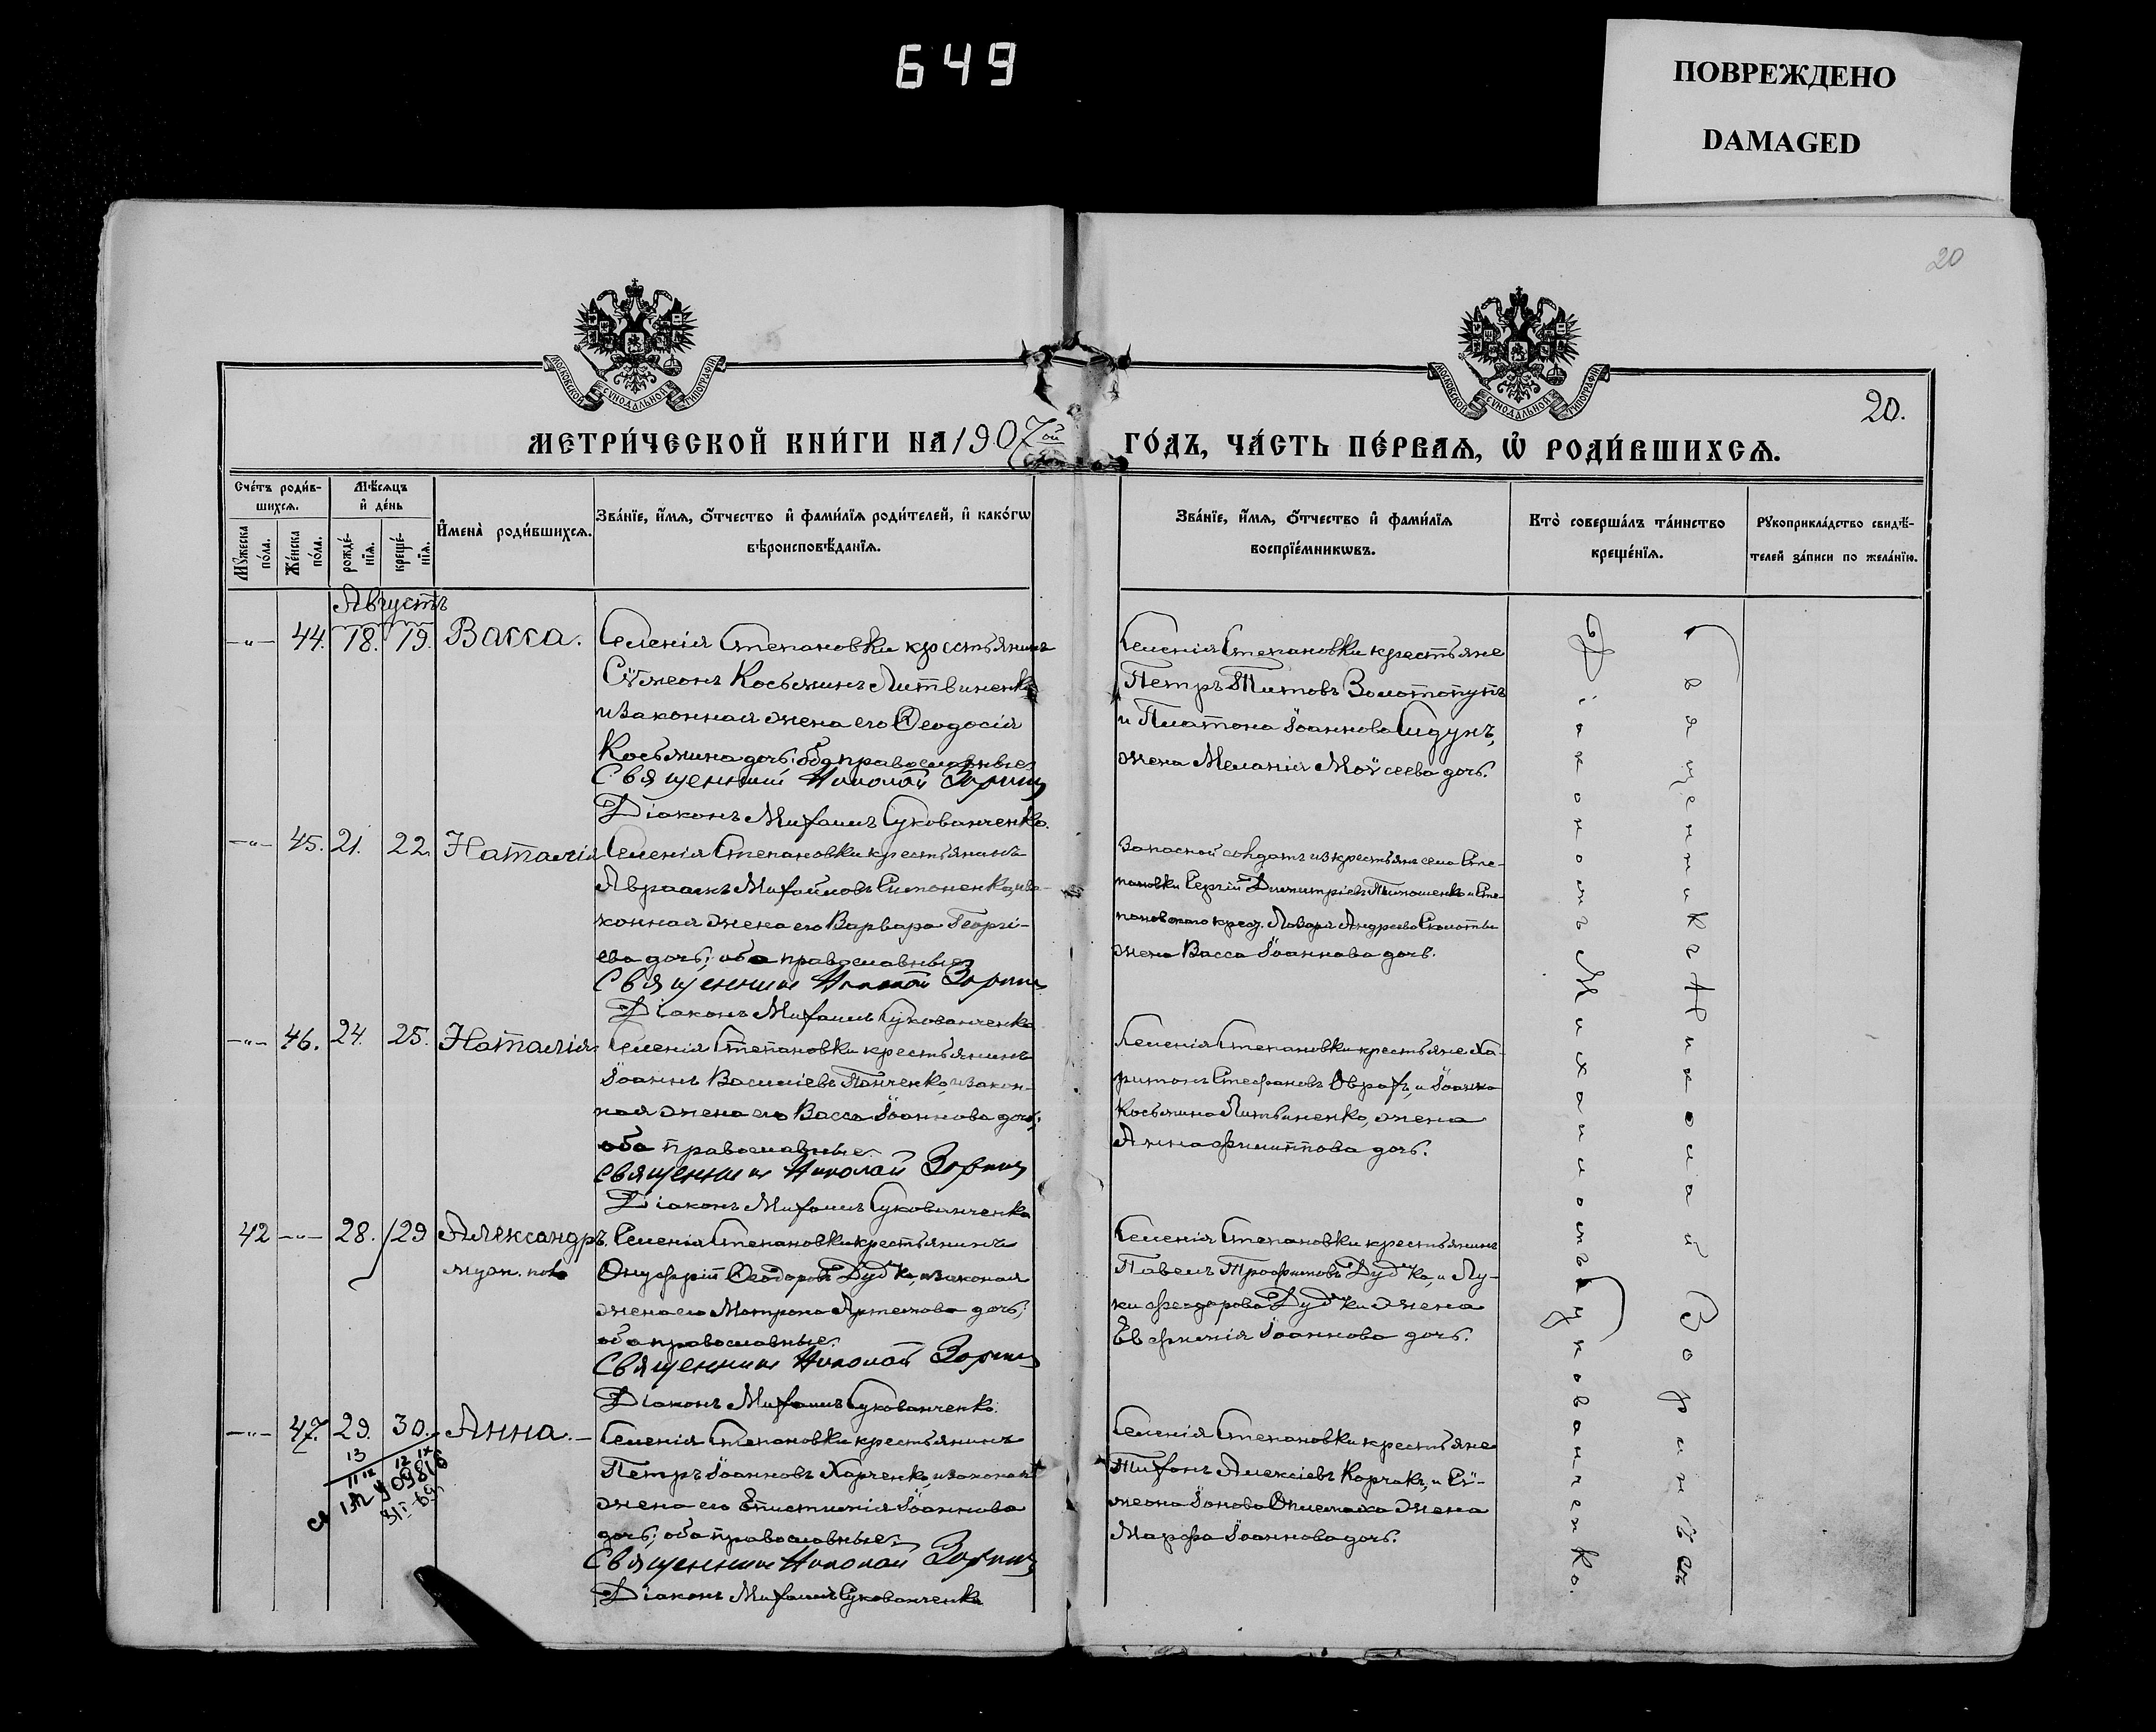 649
ПОВРЕЖДЕНО
DAMAGED
20
МОСКОВСКОЙ СѴНОДАЛЬНОЙ ТИПОГРАФІИ
МОСКОВСКОЙ СѴНОДАЛЬНОЙ ТИПОГРАФІИ
20.
МЕТРИ́ЧЕСКОЙ КНИ́ГИ НА 1907ой ГО́ДЪ, ЧА́СТЬ ПЕ́РВАѦ, Ѽ РОДИ́ВШИХСѦ.
Сче́тъ роди́вшихсѧ.
Мꙋ́жеска по́ла.
Же́нска по́ла.
Мѣ́сѧцъ и҆ де́нь
рожде́нїѧ.
креще́нїѧ.
И҆мена̀ роди́вшихсѧ.
Зва́нїе, и҆́мѧ, ѻ҆́тчество и҆ фами́лїѧ роди́телей, и҆ како́гѡ
вѣроисповѣ́данїѧ.
Зва́нїе, и҆́мѧ, ѻ҆́тчество и҆ фами́лїѧ
воспрїе́мникѡвъ.
Кто̀ соверша́лъ та́инство
креще́нїѧ.
Рꙋкоприкла́дство свидѣ́-
телей за́писи по жела́нїю.
Августъ
-"- 44. 18. 19. Васса.
Селенія Степановки крестьянинъ
Сѵмеонъ Косьминъ Литвиненко
и законная жена его Ѳеодосія
Косьмина дочь; оба православные
Священникъ Николай Зоринъ
Діаконъ Михаилъ Сукованченко.
Селенія Степановки крестьяне
Петръ Титовъ Золотопупъ
и Платона Іоаннова Сидунъ,
жена Меланія Моѵсеева дочь.
-"- 45. 21. 22. Наталія
Селенія Степановки крестьянинъ
Авраамъ Михайловъ Симоненко, и за-
конная жена его Варвара Георгі-
ева дочь; оба православные
Священникъ Николай Зоринъ
Діаконъ Михаилъ Сукованченко
Запасной солдатъ изъ крестьянъ села Сте-
пановки Сергій Димитріевъ Тимошенко и Сте-
пановскаго крест. Лазаря Андреева
жена Васса Іоаннова дочь.
-"- 46. 24. 25. Наталія
Селенія Степановки крестьянинъ
Іоаннъ Василіевъ Панченко, и закон-
ная жена его Васса Іоаннова дочь;
оба православные.
Священникъ Николай Зоринъ
Діаконъ Михаилъ Сукованченко
Селенія Степановки крестьяне Ха-
ритонъ Стефановъ Оврахъ, и Іоанна
Косьмина Литвиненко, жена
Анна Филиппова дочь.
42 -"- 28. 29 Александръ.
муж. пола
Селенія Степановки крестьянинъ
Онуфрій Ѳеодоровъ Дудка, и законая
жена его Матрона Артемова дочь;
оба православные.
Священникъ Николай Зоринъ
Діаконъ Михаилъ Сукованченко.
Селенія Степановки крестьянинъ
Павелъ Трофимовъ Дудка, и Лу-
ки Феодорова Дудки жена
Евфимія Іоаннова дочь.
-"- 47. 29. 30. Анна.-
Селенія Степановки крестьянинъ
Петръ Іоанновъ Харченко, и законая
жена его Епистимія Іоаннова
дочь; оба православные.
Священникъ Николай Зоринъ
Діаконъ Михаилъ Сукованченко
Селенія Степановки крестьяне
Тихонъ Алексіевъ Корчакъ, и Сѵ-
меона Іонова жена
Марфа Іоаннова дочь.
Священникъ Николай Зоринъ съ
Діакономъ Михаиломъ Сукованченко.